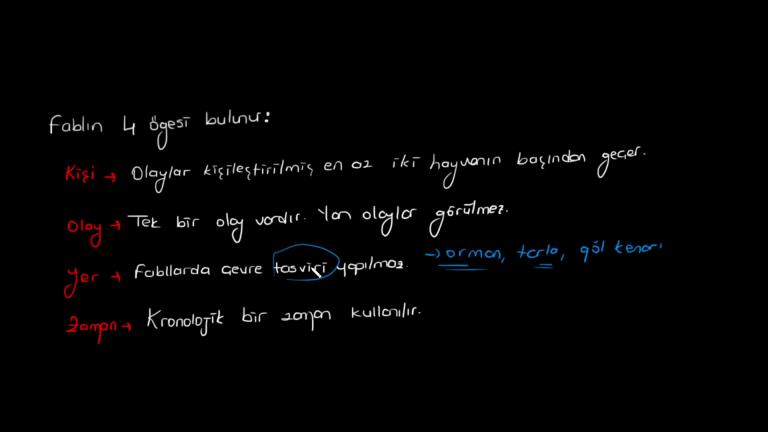 Fablın 4 ögesi bulunur:
Kişi → Olaylar kişileştirilmiş en az iki hayvanın başından geçer.
Olay → Tek bir olay vardır. Yan olaylar görülmez.
Yer → Fabllarda çevre tasviri yapılmaz. → orman, tarla, göl kenarı
Zaman → Kronolojik bir zaman kullanılır.